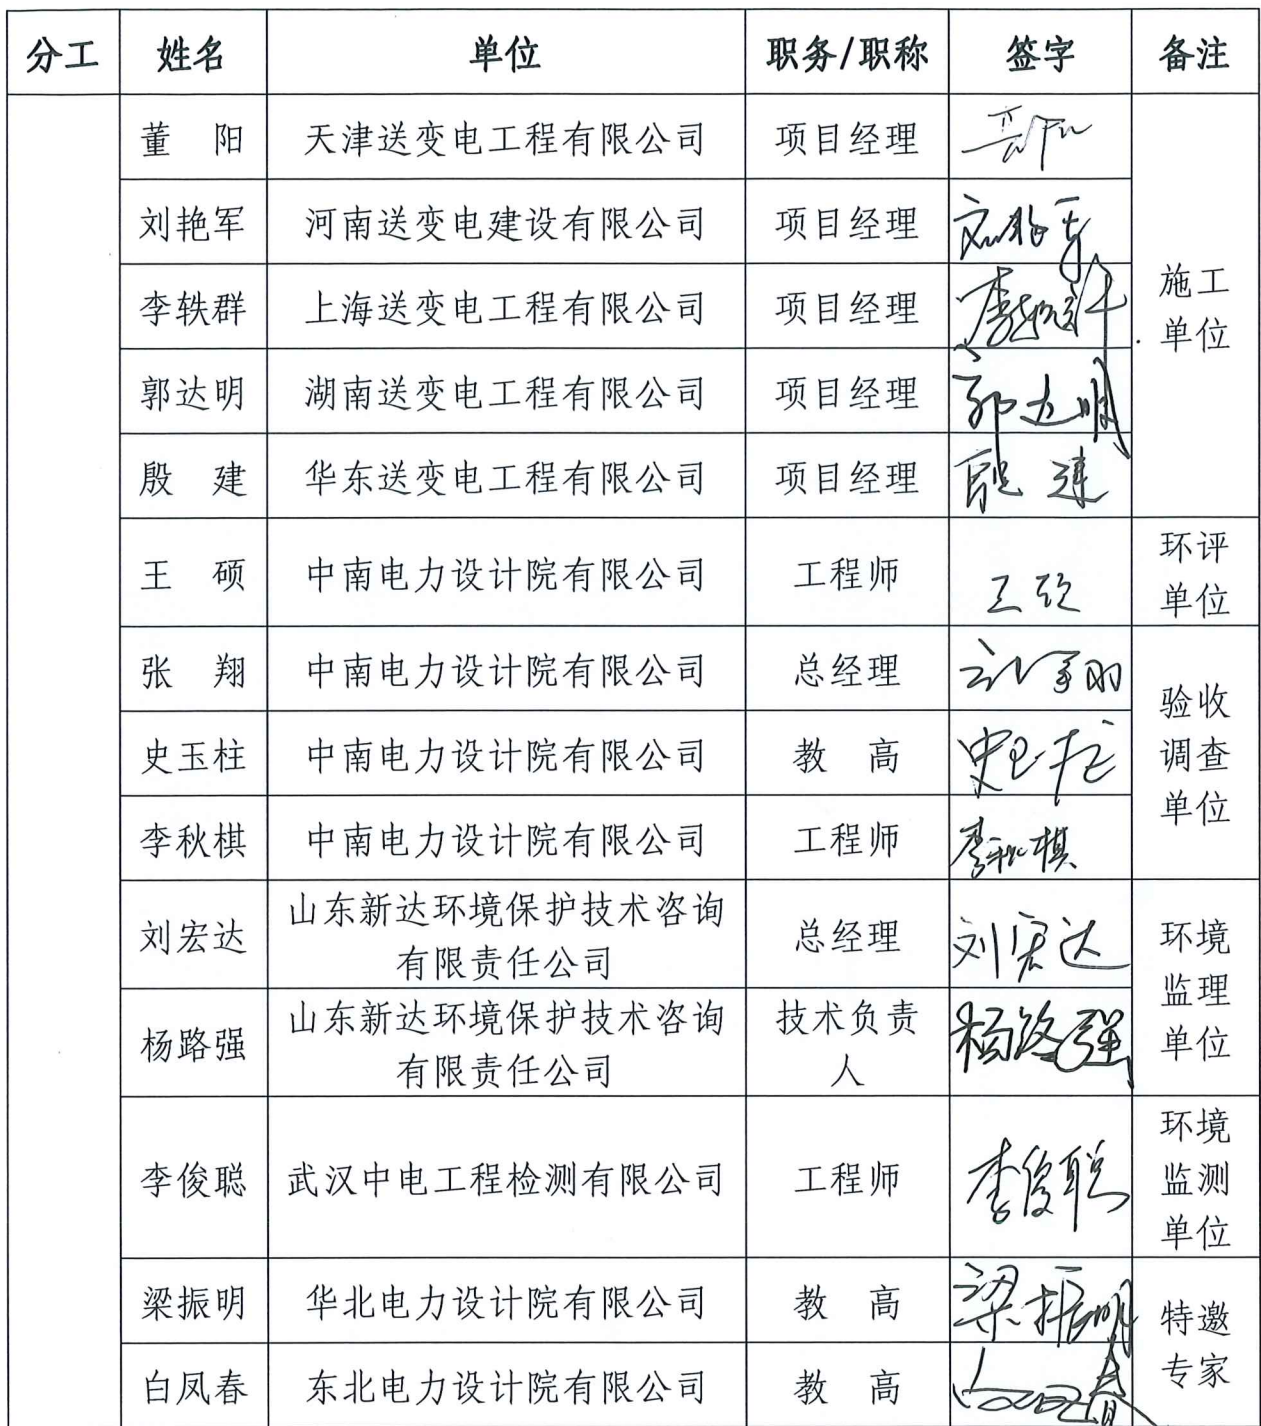 分工 姓名 单位 职务/职称 签字 备注
董 阳 天津送变电工程有限公司 项目经理
刘艳军 河南送变电建设有限公司 项目经理 刘艳军
李轶群 上海送变电工程有限公司 项目经理 李轶群
施工
单位
郭达明 湖南送变电工程有限公司 项目经理 郭达明
殷 建 华东送变电工程有限公司 项目经理 殷建
王 硕 中南电力设计院有限公司 工程师 王硕
环评
单位
张 翔 中南电力设计院有限公司 总经理 张翔
史玉柱 中南电力设计院有限公司 教 高 史玉柱
李秋棋 中南电力设计院有限公司 工程师 李秋棋
验收
调查
单位
刘宏达 山东新达环境保护技术咨询
有限责任公司 总经理 刘宏达
杨路强 山东新达环境保护技术咨询
有限责任公司 技术负责
人 杨路强
环境
监理
单位
李俊聪 武汉中电工程检测有限公司 工程师 李俊聪
环境
监测
单位
梁振明 华北电力设计院有限公司 教 高 梁振明
白凤春 东北电力设计院有限公司 教 高 白凤春
特邀
专家